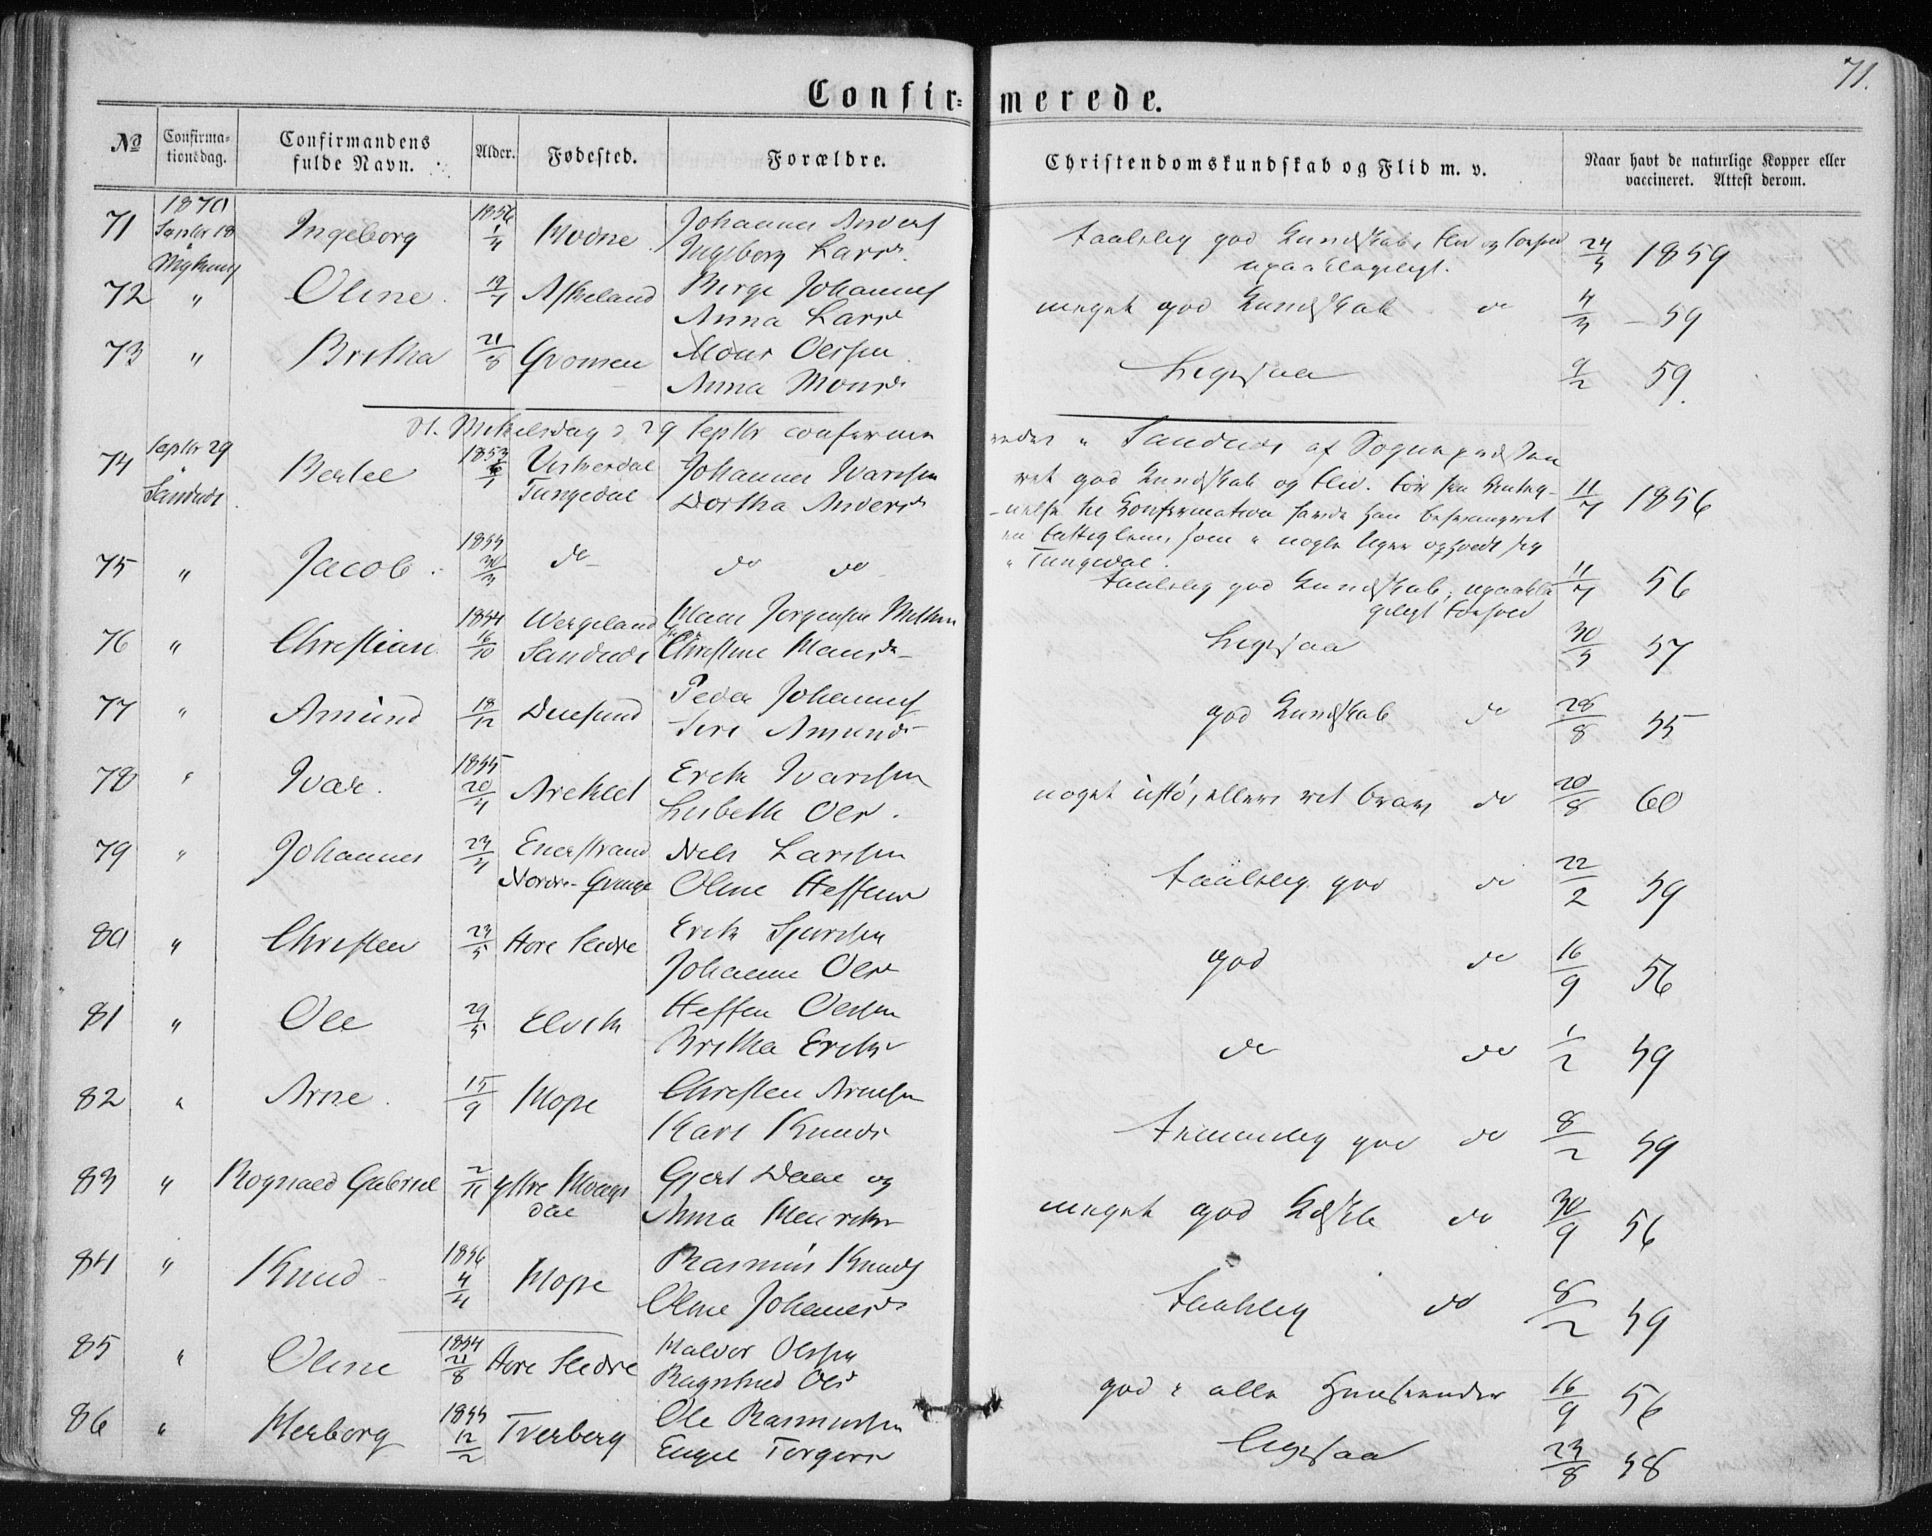 71.
Confir= merede.
№ Confirma= tionsdag. Confirmandens fulde Navn. Alder. Fødested. Forældre. Christendomskundskab og Flid m. v. Naar havt de naturlige Kopper eller vaccineret. Attest derom.
71 1870 Septbr 18 Ingeborg 1856 1/4 Johannes Anders Ingeborg Lars taalelig god Kundskab, Flid og 24/5 1859
72 " Oline 19/4 Askeland Børge Johannes Anna Lars meget god Kundskab do 4/3 - 59
73 " Britha 21/8 Mons Olsen Anna Mons Ligesaa 9/2 59.
St. Mikelsdag d. 29 Septbr confirme redes i Sandnes af Sognepræsten
74 Septbr 29 Sandnes 1853 Tungedal Johannes Ivarsen Dortha Anders ret god Kundskab og Flid. før 11/7 1856
til Confirmation havde han besvangret
som i nogle Uger opholdt sig
i Tungedal.
75 " Jacob 1855 30/3 do do do taalelig god Kundskab, 11/7 56
76 " Christian 1854 16/10 Wergeland Sandnes Jørgensen Christine Ligesaa 30/5 57
77 " Amund 18/12 Duesund Peder Johannes Siri Amunds god Kundskab do 28/8 55
78 " Ivar 1855 20/4 Areklet Erik Ivarsen Lisbeth Ols noget ellers ret brav, do 20/8 60
79 " Johannes 23/4 Enerstrand Nels Larsen Oline Steffens taalelig god do 22/2 59
80 " Christen 23/5 Erik Johanne Ols god do 16/9 56
81 " Ole 29/5 Elvik Steffen Olsen Britha Eriks do do 1/2 59
82 " Arne 15/9 Hope Christen Arnesen Kari Knuds temmelig god do 8/2 59
83 " Rognald Gabriel 2/11 Ytre Gjert Daae og Anna Henriks meget god do 30/9 56
84 " Knud 1856 4/4 Hope Rasmus Knuds Oline Johannes taalelig do 8/2 59
85 " Oline 1854 21/8 Halvor Olsen Ragnhild Ols god i alle Henseender 16/9 56
86 " Herborg 1855 12/2 Tverberg Ole Rasmussen Engel Torgers ligesaa 23/8 58